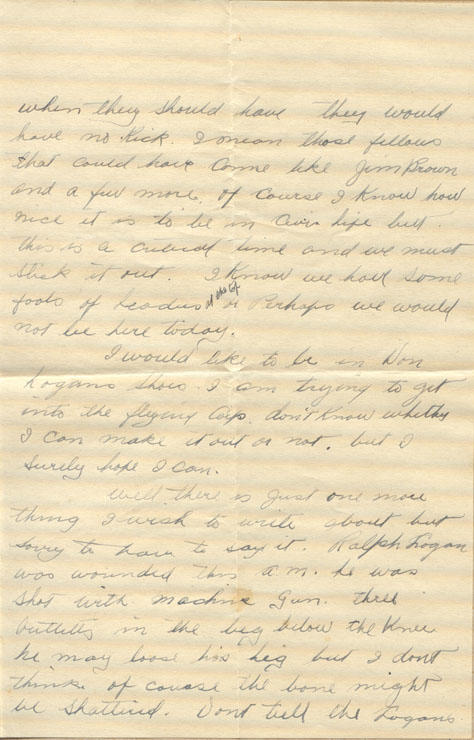 when they should have they would
have no Kick. I mean those fellows
that could have Come like Jim Brown
and a few more, of Course I Know how
nice it is to be in Civi life but
this is a critical time and we must
Stick it out. I Know we have Some
fools of Leaders at the top or Perhaps we would
not be here today.
I would like to be in Don
Logans Shoes. I am trying to get
into the flying Corp. dont Know whether
I Can make it out or not, but I
Surely hope I Can.
Well there is Just one more
thing I wish to write about but
Sorry to have to say it. Ralph Logan
was wounded this a.m. he was
Shot with machine Gun. three
bulletts in the leg below the Knee
he may loose his leg but I dont
think. of course the bone might
be Shattered. Dont tell the Logans